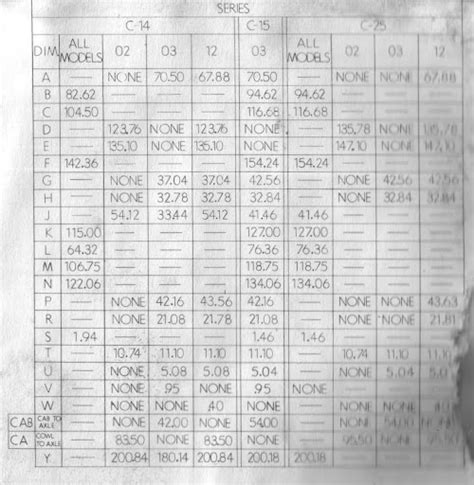 SERIES
C-14 C-15 C-25
DIM. ALL MODELS 02 03 12 03 ALL MODELS 02 03 12
A — NONE 70.50 67.88 70.50 — NONE NONE 67.88
B 82.62 — — — 94.62 94.62 — — —
C 104.50 — — — 116.68 116.68 — — —
D — 123.76 NONE 123.76 NONE — 135.78 NONE 135.78
E — 135.10 NONE 135.10 NONE — 147.10 NONE 147.10
F 142.36 — — — 154.24 154.24 — — —
G — NONE 37.04 37.04 42.56 — NONE 42.56 42.56
H — NONE 32.78 32.78 32.84 — NONE 32.84 32.84
J — 54.12 33.44 54.12 41.46 41.46 — — —
K 115.00 — — — 127.00 127.00 — — —
L 64.32 — — — 76.36 76.36 — — —
M 106.75 — — — 118.75 118.75 — — —
N 122.06 — — — 134.06 134.06 — — —
P — NONE 42.16 43.56 42.16 — NONE NONE 43.63
R — NONE 21.08 21.78 21.08 — NONE NONE 21.81
S 1.94 — — — 1.46 1.46 — — —
T — 10.74 11.10 11.10 11.10 — 10.74 11.10 11.10
U — NONE 5.08 5.08 5.04 — NONE 5.04
V — NONE .95 NONE .95 NONE — — —
W — NONE NONE .40 NONE — NONE NONE
CAB CAB TO AXLE — NONE 42.00 NONE 54.00 — NONE
CA COWL TO AXLE — 83.50 NONE 83.50 NONE — 95.50 NONE
Y — 200.84 180.14 200.84 200.18 200.18 — — —